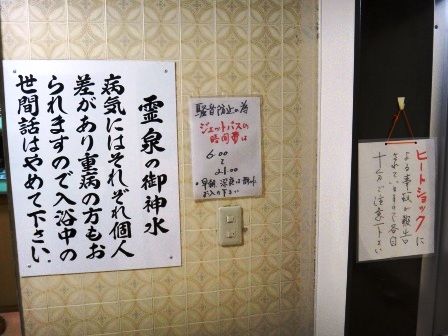 霊泉の御神水
病気にはそれぞれ個人
差があり重病の方もお
られますので入浴中の
世間話はやめて下さい。
騒音防止の為
ジェットバスの
時間帯は
6:00
〜
21:00
お入り下さい
ヒートショックに
よる事故が報告
されていますので各自
十分ご注意下さい